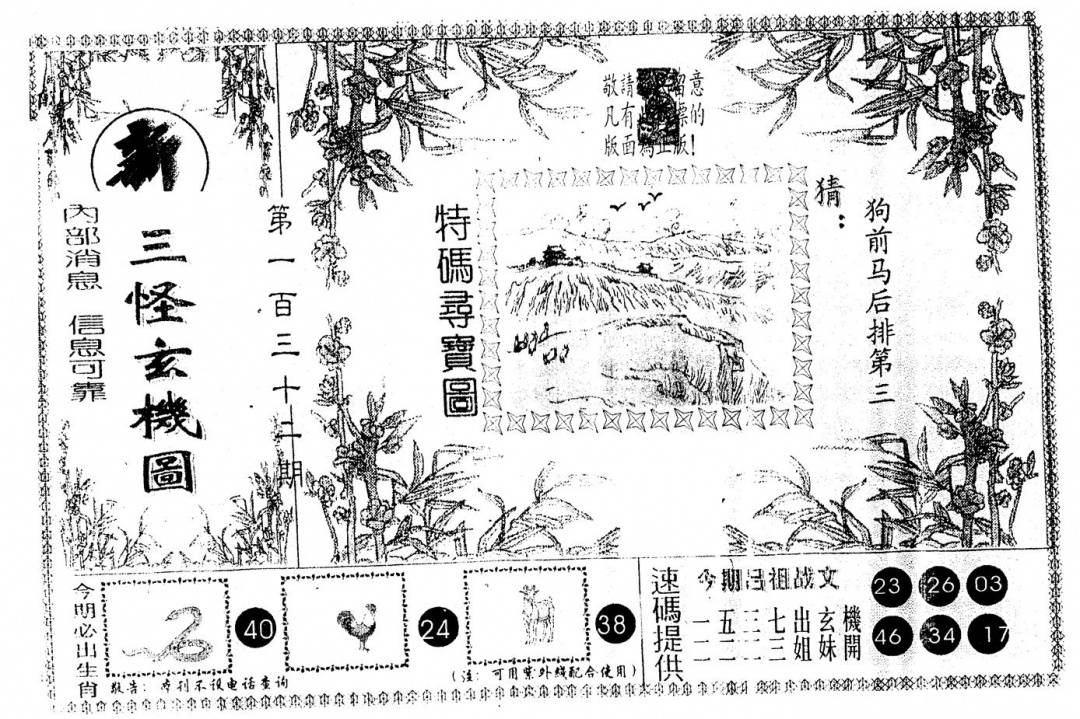 新
三怪玄機圖
內部消息 信息可靠
第一百三十二期
敬請 留意
凡有 的
版面為正版!
特碼尋寶圖
猜:
狗前马后排第三
今期必出生肖
40
24
38
敬告: 本刊不设电话查询
(注: 可用紫外线配合使用)
速碼提供
今期吕祖战文
一五三七出玄機
一一二三姐妹開
23 26 03
46 34 17